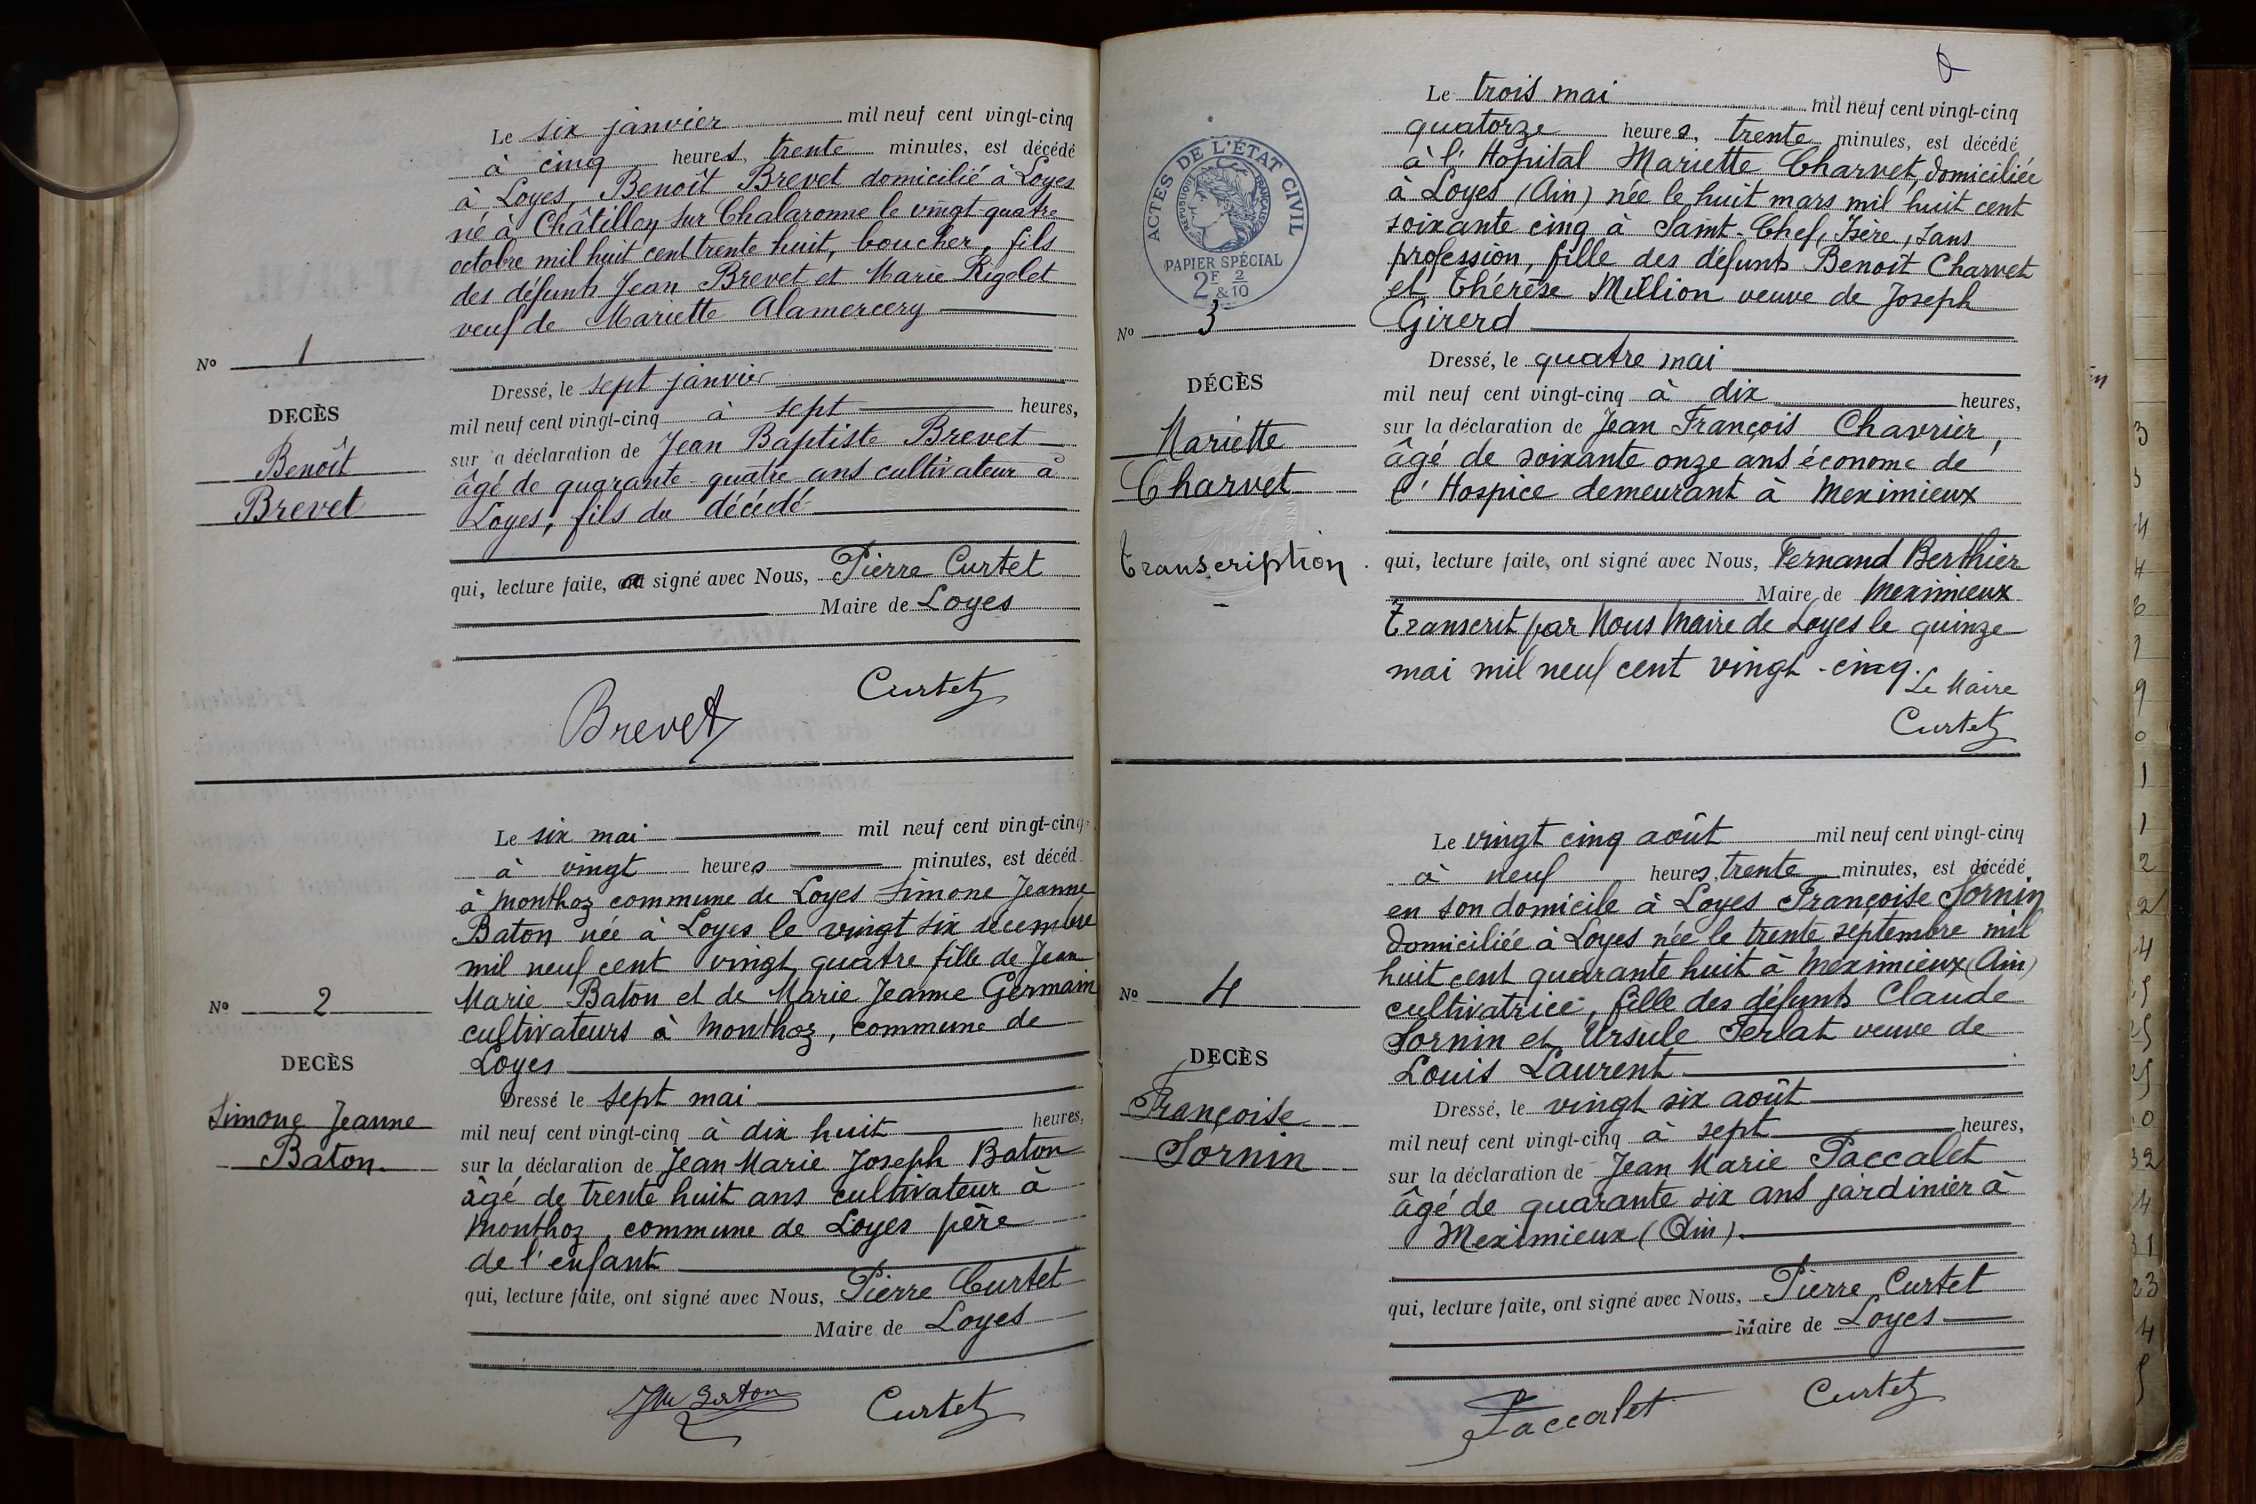 Le six janvier mil neuf cent vingt-cinq
à cinq heures, trente minutes, est décédé
à Loyes, Benoît Brevet domicilié à Loyes
né à Châtillon sur Chalaronne le vingt-quatre
octobre mil huit cent trente huit, boucher, fils
des défunts Jean Brevet et Marie Rigolet
veuf de Mariette Alamercery
No 1
DECÈS
Benoît
Brevet
Dressé, le sept janvier
mil neuf cent vingt-cinq à sept heures,
sur a déclaration de Jean Baptiste Brevet
âgé de quarante-quatre ans cultivateur à
Loyes, fils du décédé
qui, lecture faite, a signé avec Nous, Pierre Curtet
Maire de Loyes
Brevet
Curtet
Le six mai mil neuf cent vingt-cinq
à vingt heures minutes, est décéd
à Monthoz commune de Loyes Simone Jeanne
Baton née à Loyes le vingt six décembre
mil neuf cent vingt quatre fille de Jean
Marie Baton et de Marie Jeanne Germain
cultivateurs à Monthoz, commune de
Loyes
No 2
DECÈS
Simone Jeanne
Baton
Dressé le sept mai
mil neuf cent vingt-cinq à dix huit heures,
sur la déclaration de Jean Marie Joseph Baton
âgé de trente huit ans cultivateur à
Monthoz, commune de Loyes père
de l'enfant
qui, lecture faite, ont signé avec Nous, Pierre Curtet
Maire de Loyes
Baton
Curtet
ACTES DE L'ÉTAT CIVIL
RÉPUBLIQUE FRANÇAISE
PAPIER SPÉCIAL
2F & 2/10
Le trois mai mil neuf cent vingt-cinq
quatorze heures, trente minutes, est décédé
à l'Hopital Mariette Charvet, domiciliée
à Loyes (Ain) née le huit mars mil huit cent
soixante cinq à Saint-Chef, Isère, sans
profession, fille des défunts Benoît Charvet
et Thérèse Million veuve de Joseph
Girerd
No 3
DÉCÈS
Mariette
Charvet
transcription
Dressé, le quatre mai
mil neuf cent vingt-cinq à dix heures,
sur la déclaration de Jean François Chavrier,
âgé de soixante onze ans économe de
l'Hospice demeurant à Meximieux
qui, lecture faite, ont signé avec Nous, Fernand Berthier
Maire de Meximieux
Transcrit par Nous Maire de Loyes le quinze
mai mil neuf cent vingt-cinq.
Le Maire
Curtet
Le vingt cinq août mil neuf cent vingt-cinq
à neuf heures, trente minutes, est décédé
en son domicile à Loyes Françoise Sornin
domiciliée à Loyes née le trente septembre mil
huit cent quarante huit à Meximieux (Ain)
cultivatrice, fille des défunts Claude
Sornin et Ursule Perlat veuve de
Louis Laurent
No 4
DECÈS
Françoise
Sornin
Dressé, le vingt six août
mil neuf cent vingt-cinq à sept heures,
sur la déclaration de Jean Marie Paccalet
âgé de quarante six ans jardinier à
Meximieux (Ain).
qui, lecture faite, ont signé avec Nous, Pierre Curtet
Maire de Loyes
Paccalet
Curtet